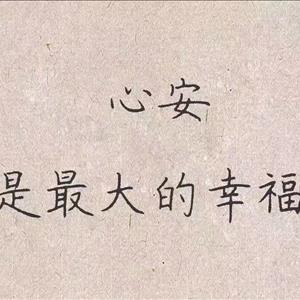 心安
是最大的幸福